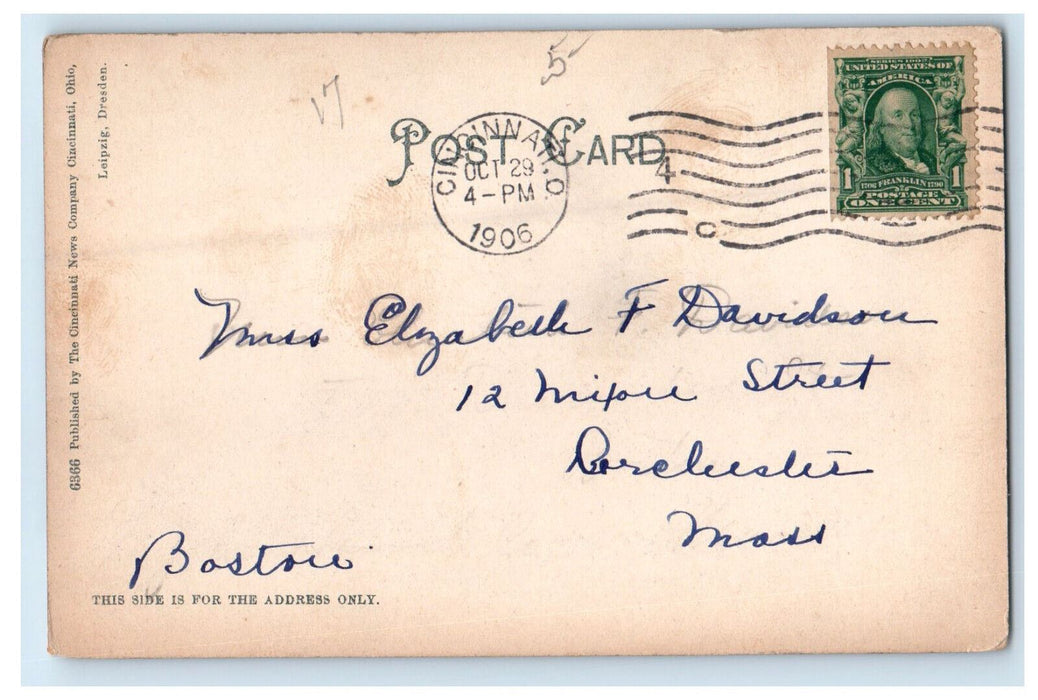 6366 Published by The Cincinnati News Company Cincinnati, Ohio,
Leipzig, Dresden.
17
5
POST CARD
CINCINNATI, O.
OCT 29
4-PM
1906
4
C
SERIES 1902
UNITED STATES OF
AMERICA
1706 FRANKLIN 1790
1 POSTAGE 1
ONE CENT
Miss Elizabeth F Davidson
12 Street
Dorchester
Mass
Boston
THIS SIDE IS FOR THE ADDRESS ONLY.